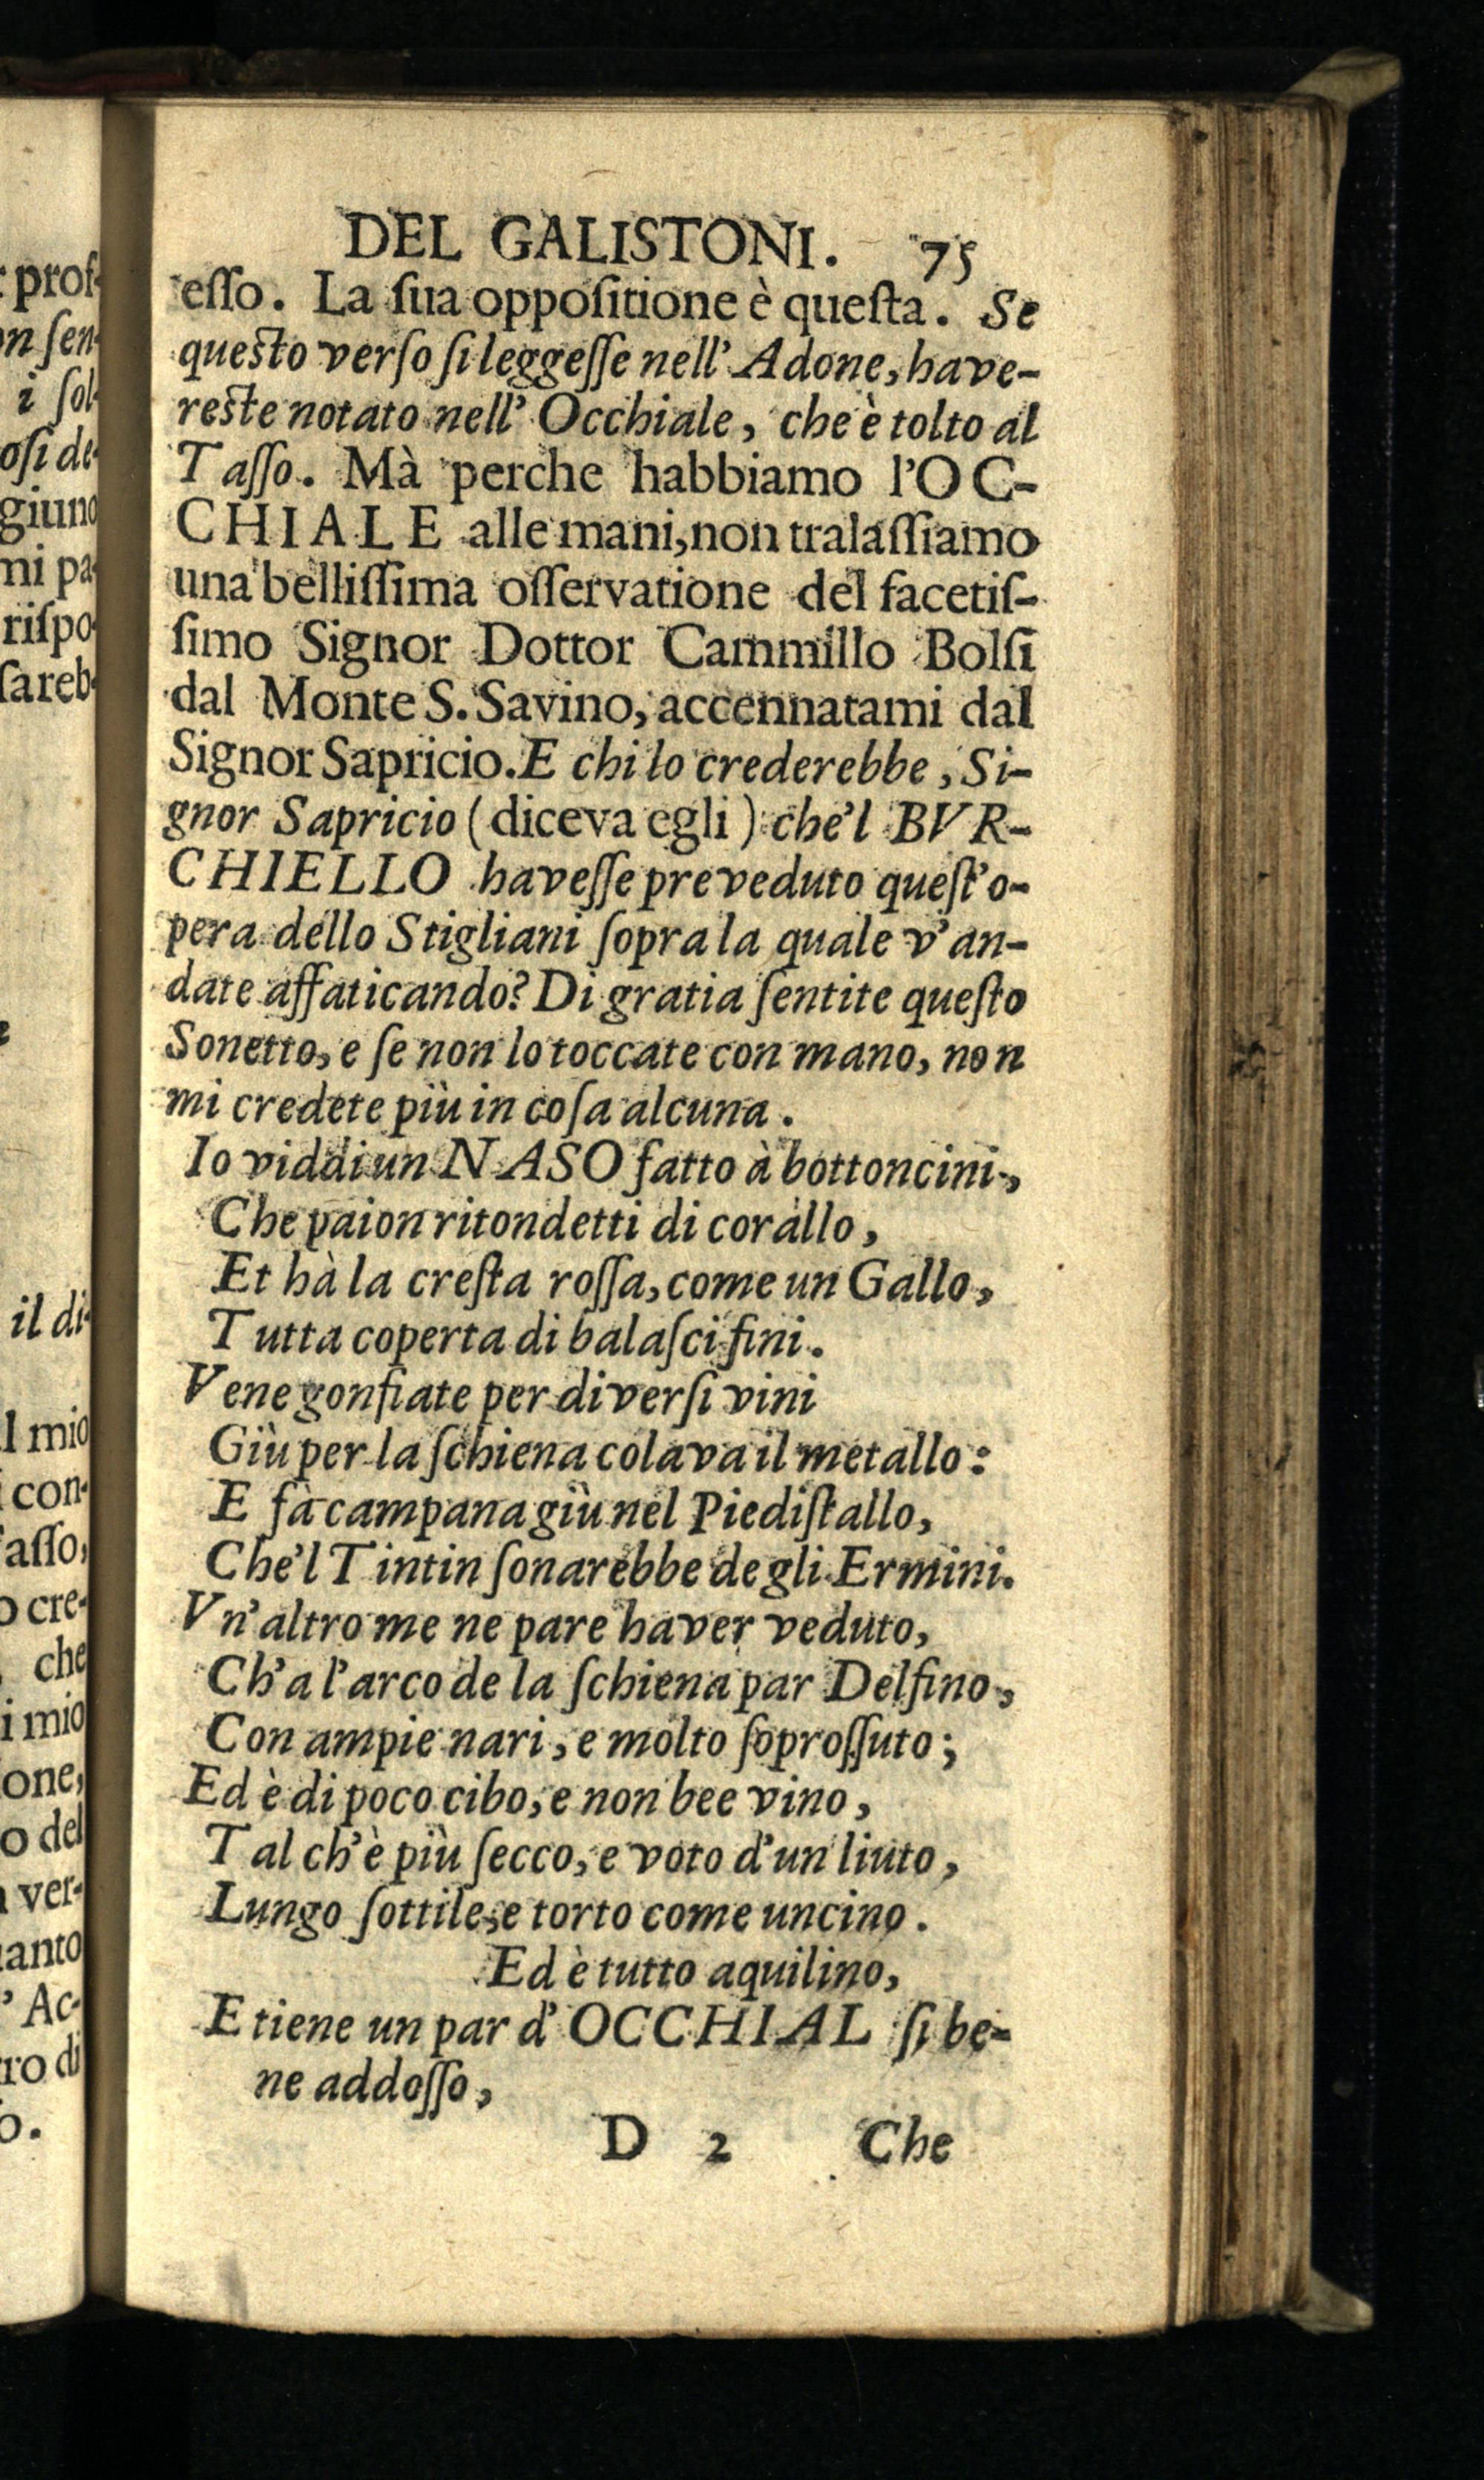 DEL GALISTONI. 75
esso. La sua oppositione è questa. Se
questo verso si leggesse nell' Adone, have-
reste notato nell' Occhiale, che è tolto al
Tasso. Mà perche habbiamo l'OC-
CHIALE alle mani, non tralassiamo
una bellissima osservatione del facetis-
simo Signor Dottor Cammillo Bolsi
dal Monte S. Savino, accennatami dal
Signor Sapricio. E chi lo crederebbe, Si-
gnor Sapricio (diceva egli) che'l BVR-
CHIELLO havesse preveduto quest'o-
pera dello Stigliani sopra la quale v'an-
date affaticando? Di gratia sentite questo
Sonetto, e se non lo toccate con mano, non
mi credete più in cosa alcuna.
Io viddi un NASO fatto à bottoncini,
Che paion ritondetti di corallo,
Et hà la cresta rossa, come un Gallo,
Tutta coperta di balasci fini.
Vene gonfiate per diversi vini
Giù per la schiena colava il metallo:
E fà campana giù nel Piedistallo,
Che'l Tintin sonarebbe de gli Ermini.
Vn'altro me ne pare haver veduto,
Ch'a l'arco de la schiena par Delfino,
Con ampie nari, e molto soprossuto;
Ed è di poco cibo, e non bee vino,
Tal ch'è più secco, e voto d'un liuto,
Lungo sottile, e torto come uncino.
Ed è tutto aquilino,
E tiene un par d' OCCHIAL si be-
ne addosso,
D 2 Che
prof-
on sen-
i sol-
osi de-
giuno
mi pa-
rispo-
sareb-
il di-
l mio
con-
asso,
o cre-
che
i mio
one,
o del
ver-
anto
' Ac-
ro di
o.